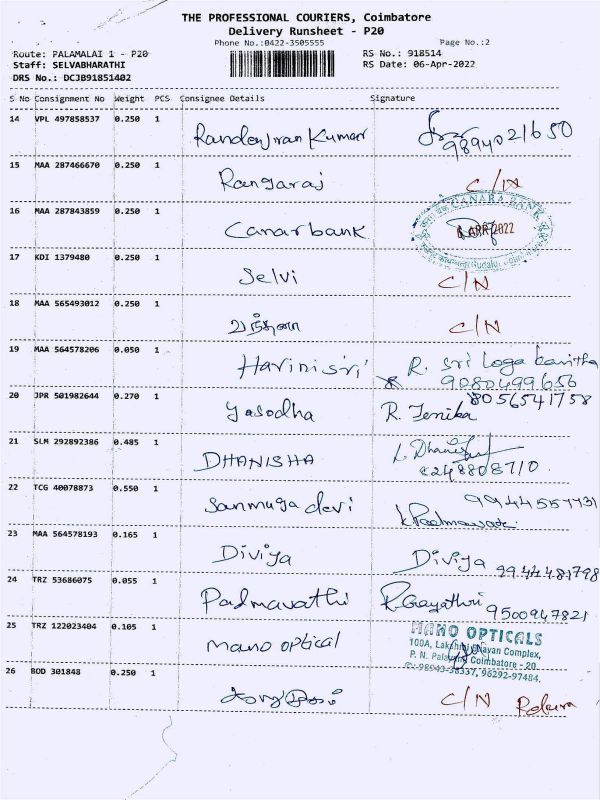 THE PROFESSIONAL COURIERS, Coimbatore
Delivery Runsheet - P20
Phone No.:0422-3505555
Page No.:2
Route: PALAMALAI 1 - P20
RS No.: 918514
Staff: SELVABHARATHI
RS Date: 06-Apr-2022
DRS No.: DCJB91851402
S No Consignment No Weight PCS Consignee Details Signature
14 VPL 497858537 0.250 1 Kumar 9894021650
15 MAA 287466670 0.250 1 Rangaraj C/N
16 MAA 287843859 0.250 1 Canarbank CANARA BANK APR 2022
17 KDI 1379480 0.250 1 Selvi C/N
18 MAA 565493012 0.250 1 C/N
19 MAA 564578206 0.050 1 Harinisri R. Sri Loga
9080499656
20 JPR 501982644 0.270 1 Yasodha R. Jenika 8056541758
21 SLM 292892386 0.485 1 DHANISHA
22 TCG 40078873 0.550 1 Sanmuga devi
23 MAA 564578193 0.165 1 Diviya Diviya 9944481798
24 TRZ 53686075 0.055 1 Padmavathi R. Gayathri 9500947821
25 TRZ 122023404 0.105 1 mano optical MANO OPTICALS
100A, Complex,
P. N. Coimbatore - 20.
96292-97484.
26 BOD 301848 0.250 1 C/N